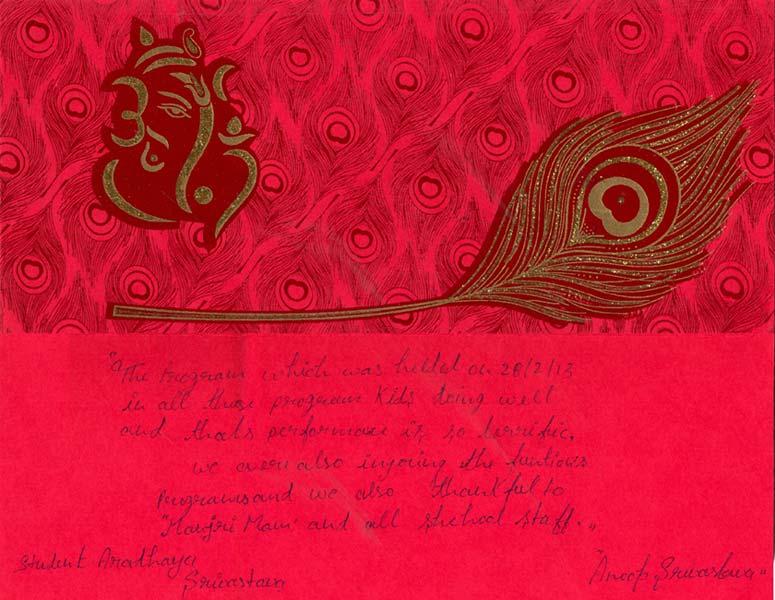 "The Program which was helded on 28/2/13
in all these program Kids doing well
and thats performance is so terrific.
we even also injoying the funtions
Programs and we also thankful to
"Manjri Mam" and all shchool staff."
Student Arathaya
Srivastava
"Anoop Srivastava"